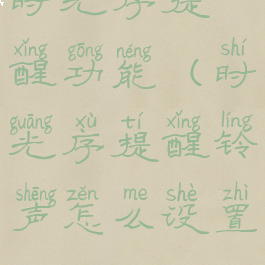 时光序提
xǐng gōng néng shí
醒功能（时
guāng xù tí xǐng líng
光序提醒铃
shēng zěn me shè zhì
声怎么设置